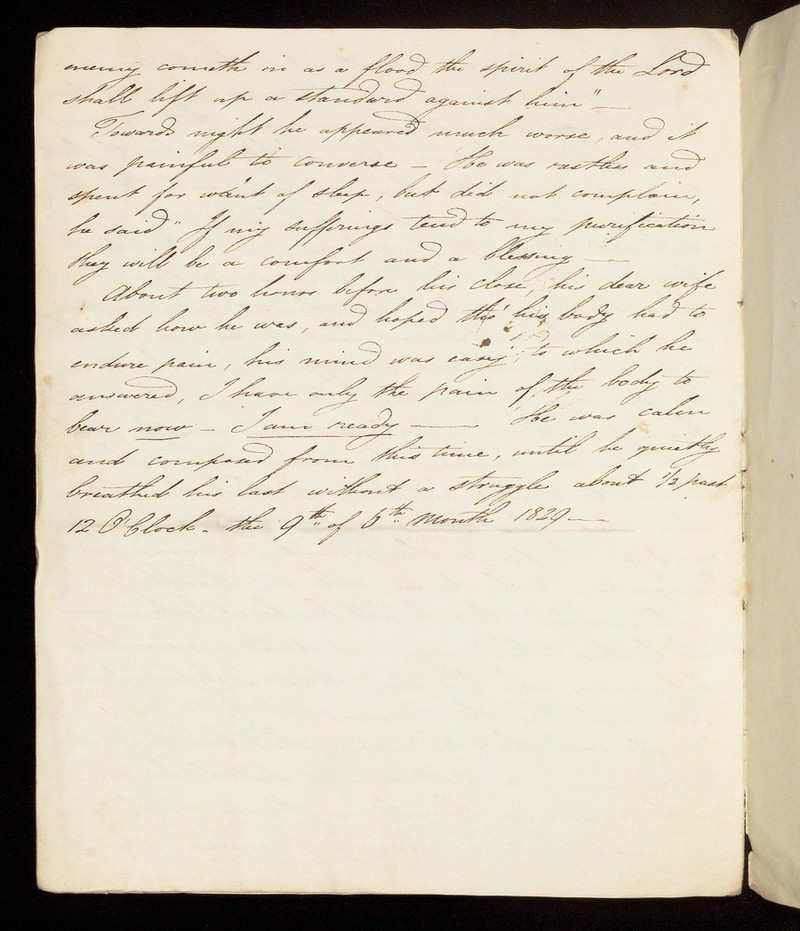 enemy cometh in as a flood the spirit of the Lord
shall lift up a standard against him" —
Towards night he appeared much worse, and it
was painful to converse — He was restless and
spent for want of sleep, but did not complain,
he said "If my sufferings tend to my purification
they will be a comfort and a blessing —
About two hours before his close, his dear wife
asked how he was, and hoped tho' his body had to
endure pain, his mind was easy; to which he
answered, I have only the pain of the body to
bear now — I am ready — He was calm
and composed from this time, until he quietly
breathed his last without a struggle about ½ past
12 O'Clock - the 9th of 6th Month 1829 —